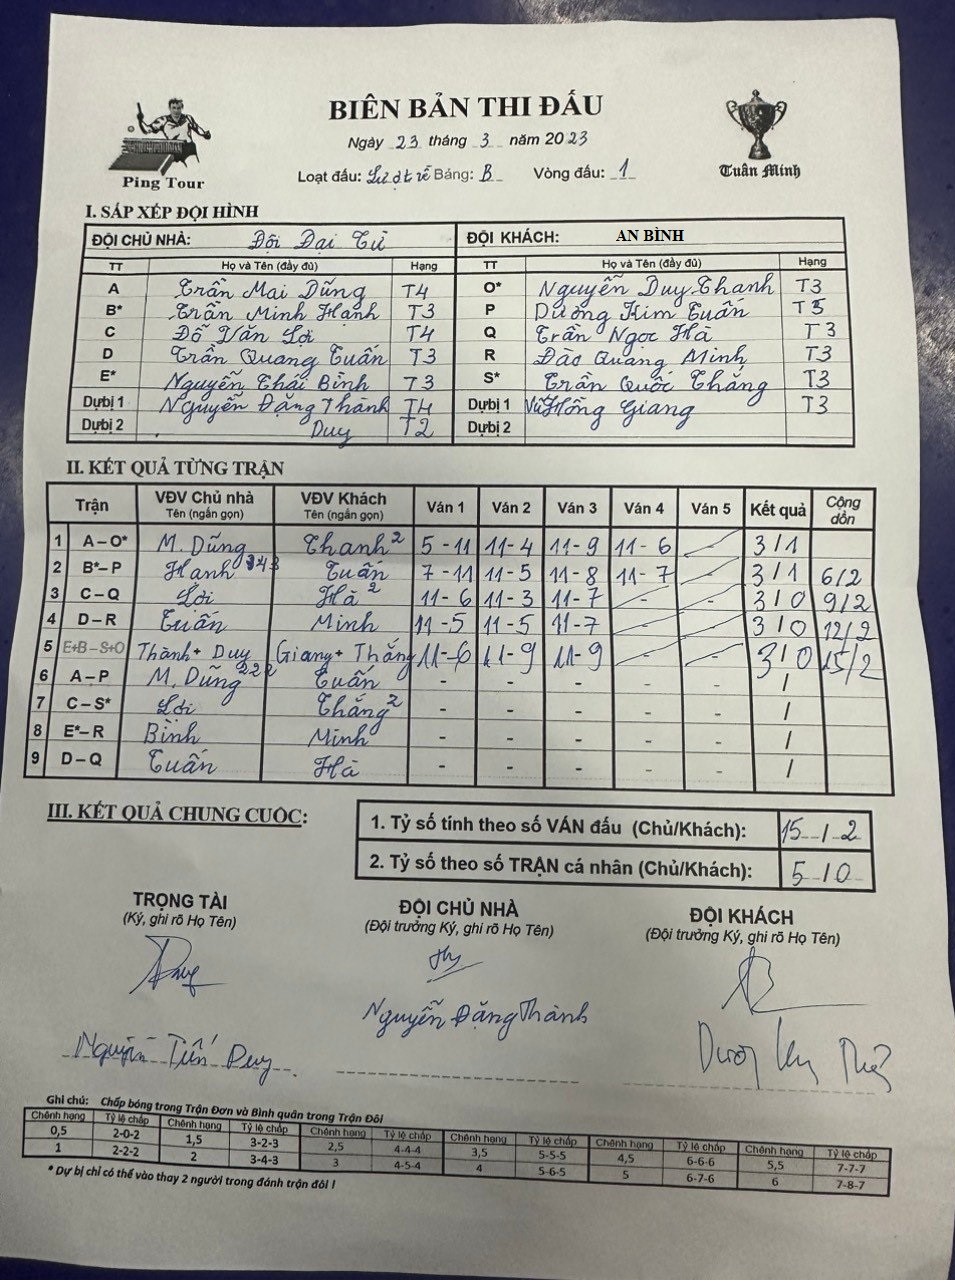 BIÊN BẢN THI ĐẤU
Ngày 23 tháng 3 năm 2023
Ping Tour
Loạt đấu: Lượt về Bảng: B Vòng đấu: 1
Tuấn Minh
I. SẮP XẾP ĐỘI HÌNH
ĐỘI CHỦ NHÀ: Đội Đại Từ ĐỘI KHÁCH: AN BÌNH
TT Họ và Tên (đầy đủ) Hạng TT Họ và Tên (đầy đủ) Hạng
A Trần Mai Dũng T4 O* Nguyễn Duy Thanh T3
B* Trần Minh Hạnh T3 P Dương Kim Tuấn T5
C Đỗ Văn Lợi T4 Q Trần Ngọc Hà T3
D Trần Quang Tuấn T3 R Đào Quang Minh T3
E* Nguyễn Thái Bình T3 S* Trần Quốc Thắng T3
Dự bị 1 Nguyễn Đặng Thành T4 Dự bị 1 Vũ Hồng Giang T3
Dự bị 2 Duy T2 Dự bị 2
II. KẾT QUẢ TỪNG TRẬN
Trận VĐV Chủ nhà Tên (ngắn gọn) VĐV Khách Tên (ngắn gọn) Ván 1 Ván 2 Ván 3 Ván 4 Ván 5 Kết quả Cộng dồn
1 A – O* M. Dũng Thanh 2 5 - 11 11 - 4 11 - 9 11 - 6 - 3 / 1
2 B* – P Hạnh 343 Tuấn 7 - 11 11 - 5 11 - 8 11 - 7 3 / 1 6/2
3 C – Q Lợi Hà 2 11 - 6 11 - 3 11 - 7 - - 3 / 0 9/2
4 D – R Tuấn Minh 11 - 5 11 - 5 11 - 7 3 / 0 12/2
5 E+B – S+O Thành + Duy Giang + Thắng 11 - 6 11 - 9 11 - 9 - - 3 / 0 15/2
6 A – P M. Dũng 222 Tuấn - - - - - /
7 C – S* Lợi Thắng 2 - - - - - /
8 E* – R Bình Minh - - - - - /
9 D – Q Tuấn Hà - - - - - /
III. KẾT QUẢ CHUNG CUỘC:
1. Tỷ số tính theo số VÁN đấu (Chủ/Khách): 15 / 2
2. Tỷ số theo số TRẬN cá nhân (Chủ/Khách): 5 / 0
TRỌNG TÀI ĐỘI CHỦ NHÀ ĐỘI KHÁCH
(Ký, ghi rõ Họ Tên) (Đội trưởng Ký, ghi rõ Họ Tên) (Đội trưởng Ký, ghi rõ Họ Tên)
Nguyễn Đặng Thành
Nguyễn Tiến Duy
Ghi chú: Chấp bóng trong Trận Đơn và Bình quân trong Trận Đôi
Chênh hạng Tỷ lệ chấp Chênh hạng Tỷ lệ chấp Chênh hạng Tỷ lệ chấp Chênh hạng Tỷ lệ chấp Chênh hạng Tỷ lệ chấp Chênh hạng Tỷ lệ chấp
0,5 2-0-2 1,5 3-2-3 2,5 4-4-4 3,5 5-5-5 4,5 6-6-6 5,5 7-7-7
1 2-2-2 2 3-4-3 3 4-5-4 4 5-6-5 5 6-7-6 6 7-8-7
* Dự bị chỉ có thể vào thay 2 người trong đánh trận đôi !